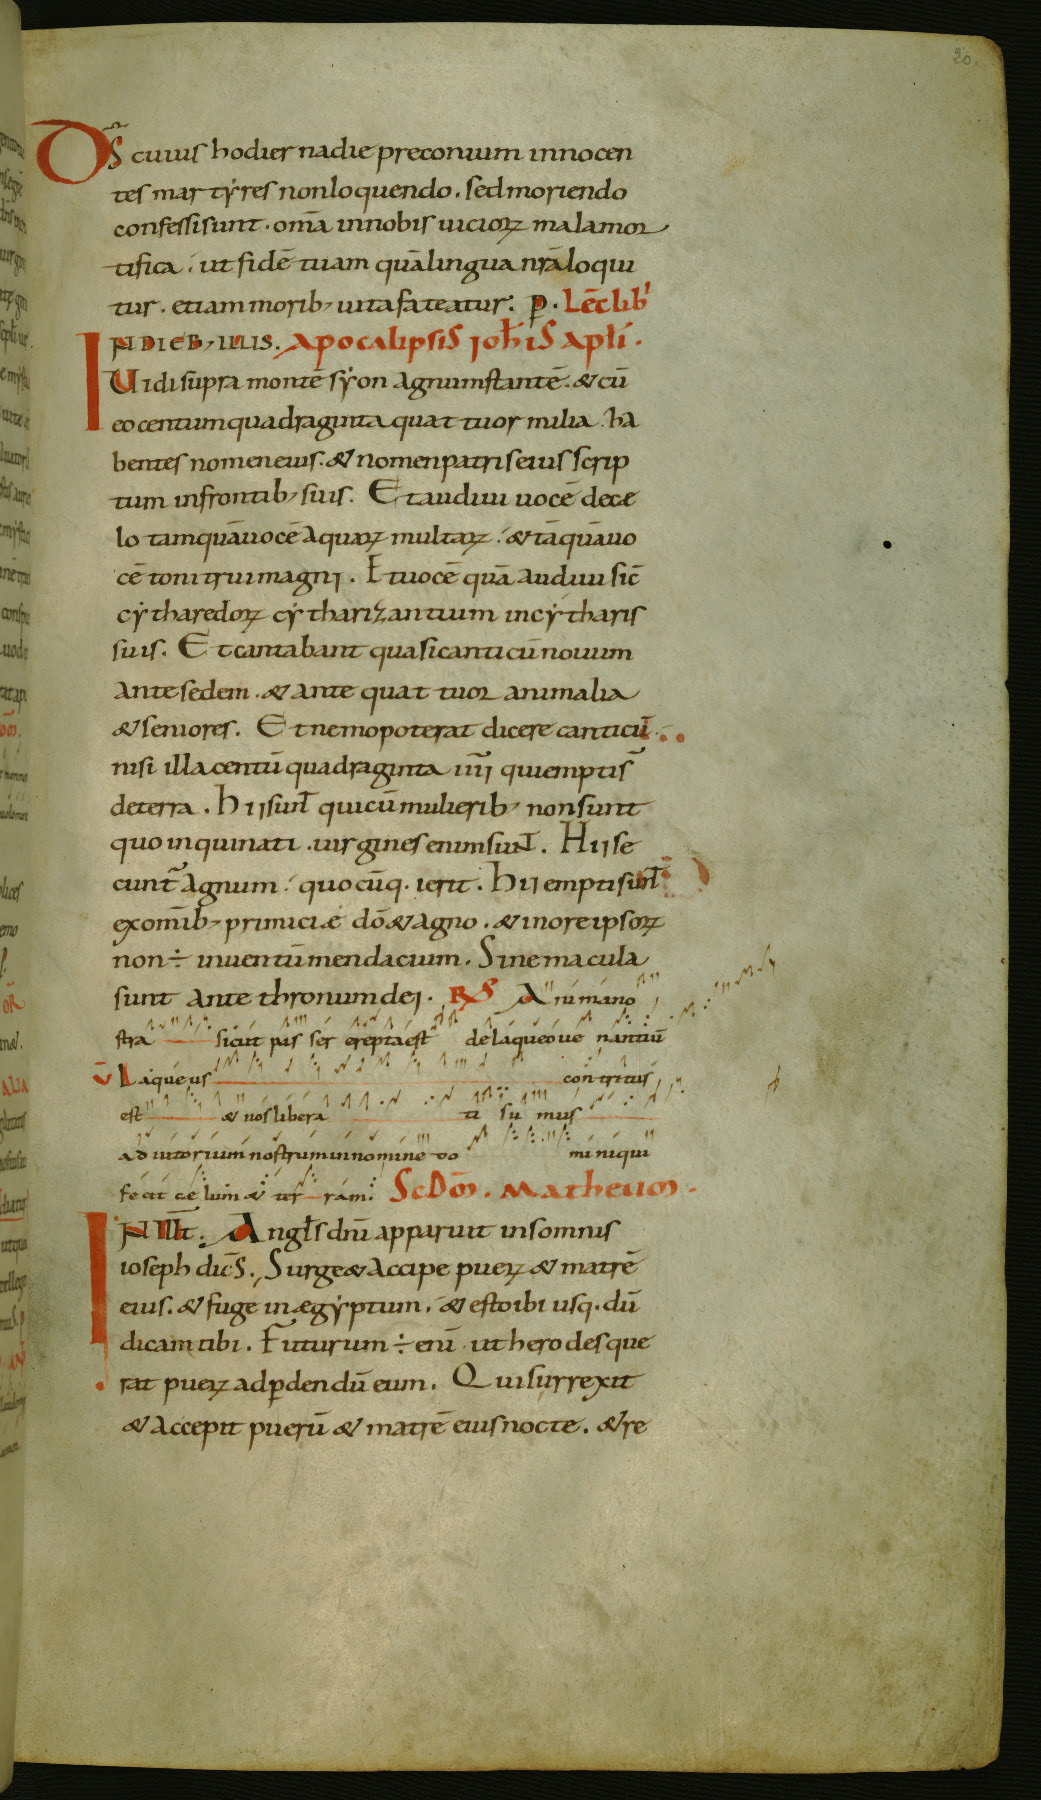 20.
D̅S cuius hodiernadie preconium innocen
tes martẏres nonloquendo. sedmoriendo
confessisunt. om̅a innobis uicioꝝ malamor
tifica. ut fidē tuam quālingua nr̅aloqui
tur. etiammorib; uitafateatur. ꝑ. Lec̅ lib̅
IN DIEB; ILLIS. Apocalipsis Joh̅is apl̅i.
Uidi supra montē sẏon agnumstantē. & cū
eocentumquadraginta quattuor milia. ha
bentes nomeneius. & nomenpatriseius scrip
tum infrontib; suis. Et audiui uocē dece
lo tamquāuocē aquaꝝ multaꝝ. & tāquāuo
cē tonitruimagni. Et uocē quā audiui sic̅
cẏtharedoꝝ cẏtharizantium incẏtharis
suis. Et cantabant quasicanticū nouum
ante sedem. & ante quattuor animalia
& seniores. Et nemopoterat dicere canticū.
nisi illa centū quadraginta iiii quiemptis̅
deterra. Hii sunt quicūmulierib; nonsunt
quoinquinati. uirgines enimsunt. Hii se
cunt̅ agnum. quocūq. ierit. Hii emptisunt
exom̅ib; primiciæ dō & agno. & inore ipsoꝝ
non ÷ inuentūmendacium. Sinemacula
sunt ante thronumdei. RS Animano
stra sicut passer erepta est delaqueo ue nantiū
V Laqueus contritus
est & nos libera ti su mus
adiutorium nostrum in nomine do mini qui
fecit celum & terram. Sc̅dm̅. Matheum.
IN ill̅t. Angl̅s dn̅i apparuit insomnis
ioseph dic̅s. Surge & accipe pueꝝ & matrē
eius. & fuge inægẏptum. & estoibi usq. dū
dicamtibi. Futurum ÷ enī ut herodesque
rat pueꝝ adꝑdendū eum. Qui surrexit
& accepit puerū & matrē eiusnocte. & re